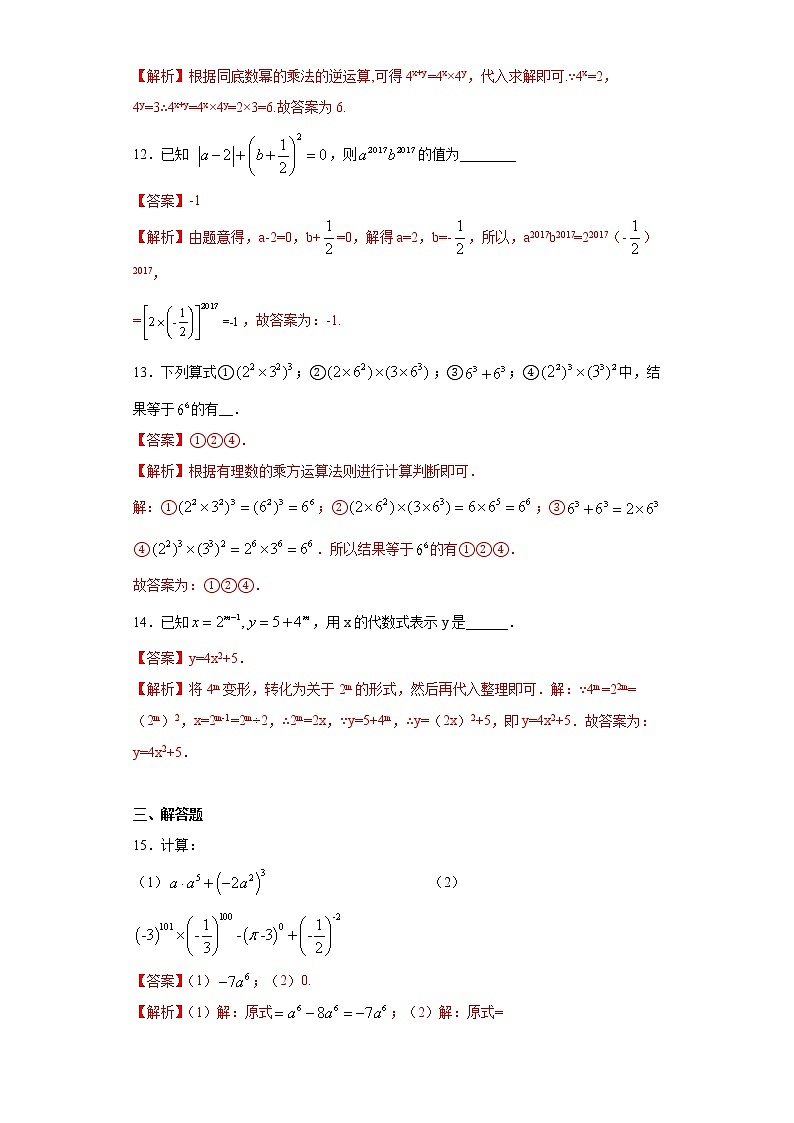 【解析】根据同底数幂的乘法的逆运算,可得 4ˣ⁺ʸ=4ˣ×4ʸ，代入求解即可.∵4ˣ=2，
4ʸ=3∴4ˣ⁺ʸ=4ˣ×4ʸ=2×3=6.故答案为 6.
12．已知 |a－2|+(b+1/2)²=0，则a²⁰¹⁷b²⁰¹⁷的值为________
【答案】-1
【解析】由题意得，a-2=0，b+1/2=0，解得 a=2，b=-1/2，所以，a²⁰¹⁷b²⁰¹⁷=2²⁰¹⁷（-1/2）
²⁰¹⁷，
=[2×(-1/2)]²⁰¹⁷=-1，故答案为：-1.
13．下列算式①(2²×3²)³；②(2×6²)×(3×6³)；③6³+6³；④(2²)³×(3³)²中，结
果等于6⁶的有__．
【答案】①②④．
【解析】根据有理数的乘方运算法则进行计算判断即可．
解：①(2²×3²)³=(6²)³=6⁶；②(2×6²)×(3×6³)=6×6⁵=6⁶；③6³+6³=2×6³
④(2²)³×(3³)²=2⁶×3⁶=6⁶．所以结果等于6⁶的有①②④．
故答案为：①②④．
14．已知x=2ᵐ⁻¹,y=5+4ᵐ，用 x 的代数式表示 y 是______．
【答案】y=4x²+5．
【解析】将 4ᵐ 变形，转化为关于 2ᵐ 的形式，然后再代入整理即可．解：∵4ᵐ=2²ᵐ=
（2ᵐ）²，x=2ᵐ⁻¹=2ᵐ÷2，∴2ᵐ=2x，∵y=5+4ᵐ，∴y=（2x）²+5，即 y=4x²+5．故答案为：
y=4x²+5．
三、解答题
15．计算：
（1）a·a⁵+(−2a²)³ （2）
(-3)¹⁰¹×(-1/3)¹⁰⁰-(π-3)⁰+(-1/2)⁻²
【答案】（1）−7a⁶；（2）0.
【解析】（1）解：原式=a⁶−8a⁶=−7a⁶；（2）解：原式=